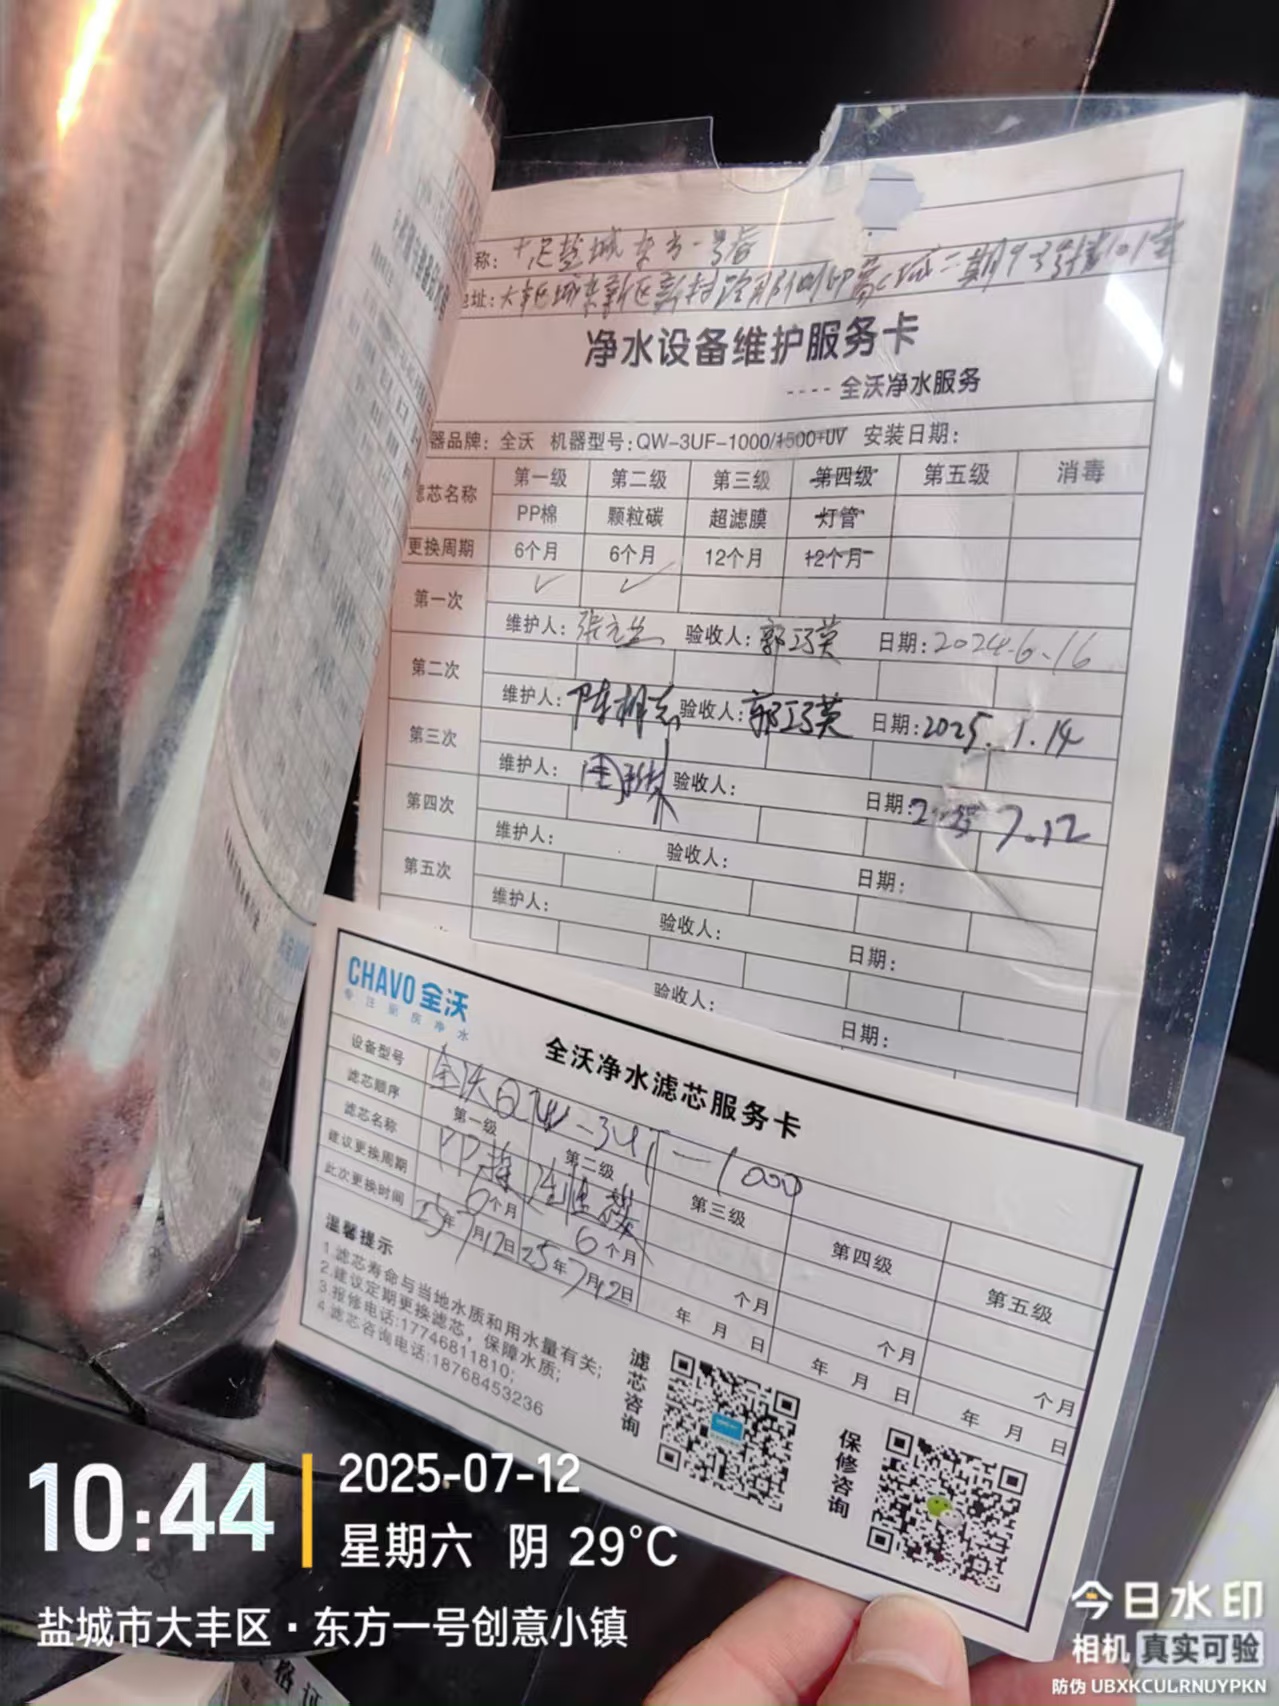 称: 十足盐城东方一号店
地址: 大丰区城东新区新村路 二期 101室
净水设备维护服务卡
---- 全沃净水服务
器品牌: 全沃 机器型号: QW-3UF-1000/1500+UV 安装日期:
滤芯名称 第一级 第二级 第三级 第四级 第五级 消毒
PP棉 颗粒碳 超滤膜 灯管
更换周期 6个月 6个月 12个月 12个月
第一次 ✓ ✓
维护人: 验收人: 郭巧英 日期: 2024.6.16
第二次
维护人: 验收人: 郭巧英 日期: 2025.1.14
第三次
维护人: 验收人: 日期: 7.12
第四次
维护人: 验收人: 日期:
第五次
维护人: 验收人: 日期:
验收人: 日期:
CHAVO 全沃
专注厨房净水
全沃净水滤芯服务卡
设备型号 全沃QW-3UF-1000
滤芯顺序 第一级 第二级 第三级 第四级 第五级
滤芯名称 PP棉
建议更换周期 6个月 6个月 个月 个月 个月
此次更换时间 25年7月12日 25年7月12日 年 月 日 年 月 日 年 月 日
温馨提示
1.滤芯寿命与当地水质和用水量有关;
2.建议定期更换滤芯，保障水质;
3.报修电话:17746811810;
4.滤芯咨询电话:18768453236
滤芯咨询
保修咨询
10:44
2025-07-12
星期六 阴 29°C
盐城市大丰区·东方一号创意小镇
今日水印
相机 真实可验
防伪 UBXKCULRNUYPKN
格证